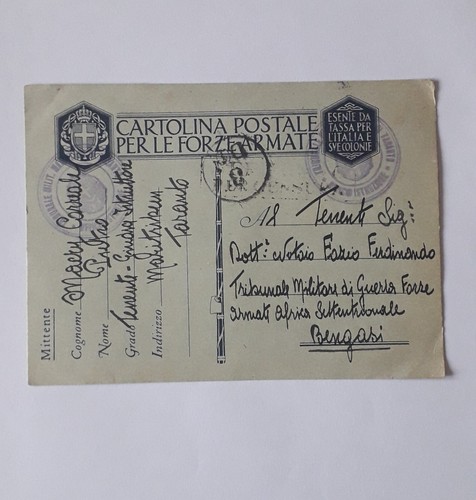 CARTOLINA POSTALE
PER LE FORZE ARMATE
ESENTE DA
TASSA PER
L'ITALIA E
SVE COLONIE
Mittente
Cognome
Nome Pietro
Grado Tenente - Giudice Istruttore
Indirizzo Maritrisem
Taranto
Al Tenente Sig.
Dott. Notaio Fazio Ferdinando
Tribunale Militare di Guerra Forze
armate Africa Settentrionale
Bengasi